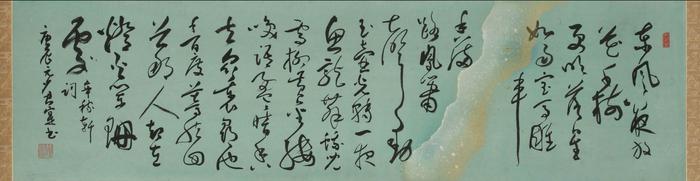 東風夜放
花千樹
更吹落星
如雨寶馬雕
車
香滿
路鳳簫
聲動
玉壺光轉一夜
魚龍舞蛾兒
雪柳黃金縷
笑語盈盈暗香
去眾裏尋他
千百度驀然回
首那人卻在
燈火闌珊
處
辛稼軒
詞
庚辰元夕書